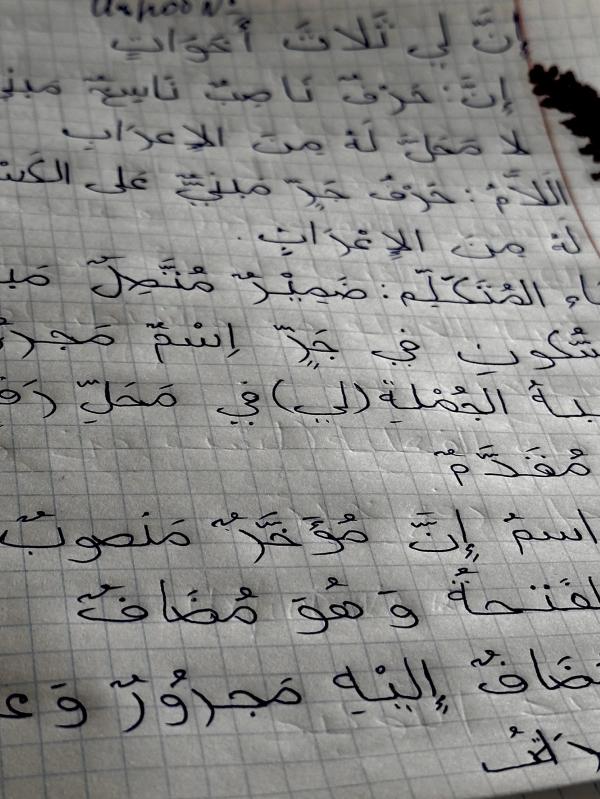 إِنَّ لِي ثَلَاثَ أَخَوَاتٍ
إِنَّ: حَرْفٌ نَاصِبٌ نَاسِخٌ مَبنِيٌّ
لَا مَحَلَّ لَهُ مِنَ الإِعرَابِ
اَللَّامُ: حَرْفُ جَرٍّ مَبنِيٌّ عَلَى
لَهُ مِنَ الإِعْرَابِ.
المُتَكَلِّمِ: ضَمِيْرٌ مُتَّصِلٌ
فِي جَرٍّ اِسْمٌ
الجُمْلَةِ (لِي) فِي مَحَلِّ
مُقَدَّمٌ
اسمُ إِنَّ مُؤَخَّرٌ مَنصوبٌ
وَهُوَ مُضَافٌ
إِلَيْهِ مَجروُرٌ وَ